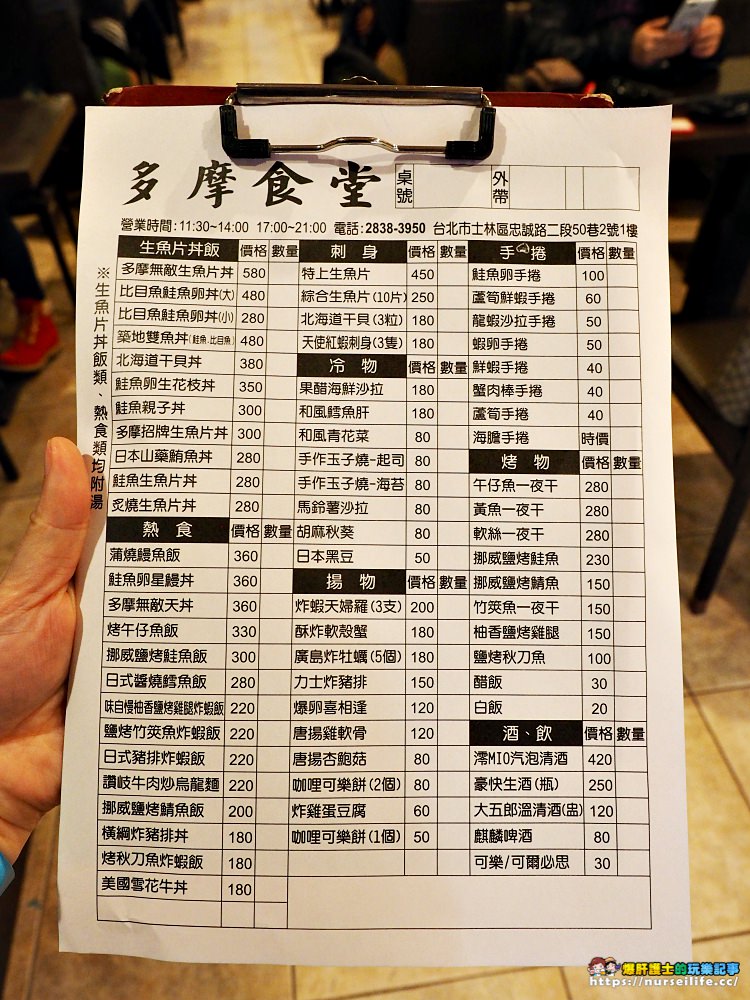 多摩食堂 桌號 外帶
營業時間:11:30~14:00 17:00~21:00 電話:2838-3950 台北市士林區忠誠路二段50巷2號1樓
※生魚片丼飯類、熱食類均附湯
生魚片丼飯 價格 數量
多摩無敵生魚片丼 580
比目魚鮭魚卵丼(大) 480
比目魚鮭魚卵丼(小) 280
築地雙魚丼(鮭魚、比目魚) 480
北海道干貝丼 380
鮭魚卵生花枝丼 350
鮭魚親子丼 300
多摩招牌生魚片丼 300
日本山藥鮪魚丼 280
鮭魚生魚片丼 280
炙燒生魚片丼 280
熱食 價格 數量
蒲燒鰻魚飯 360
鮭魚卵星鰻丼 360
多摩無敵天丼 360
烤午仔魚飯 330
挪威鹽烤鮭魚飯 300
日式醬燒鱈魚飯 280
味自慢柚香鹽烤雞腿炸蝦飯 220
鹽烤竹筴魚炸蝦飯 220
日式豬排炸蝦飯 220
讚岐牛肉炒烏龍麵 220
挪威鹽烤鯖魚飯 200
橫綱炸豬排丼 180
烤秋刀魚炸蝦飯 180
美國雪花牛丼 180
刺身 價格 數量
特上生魚片 450
綜合生魚片(10片) 250
北海道干貝(3粒) 180
天使紅蝦刺身(3隻) 180
冷物 價格 數量
果醋海鮮沙拉 180
和風鱈魚肝 180
和風青花菜 80
手作玉子燒-起司 80
手作玉子燒-海苔 80
馬鈴薯沙拉 80
胡麻秋葵 80
日本黑豆 50
揚物 價格 數量
炸蝦天婦羅(3支) 200
酥炸軟殼蟹 180
廣島炸牡蠣(5個) 180
力士炸豬排 150
爆卵喜相逢 120
唐揚雞軟骨 120
唐揚杏鮑菇 80
咖哩可樂餅(2個) 80
炸雞蛋豆腐 60
咖哩可樂餅(1個) 50
手捲 價格 數量
鮭魚卵手捲 100
蘆筍鮮蝦手捲 60
龍蝦沙拉手捲 50
蝦卵手捲 50
鮮蝦手捲 40
蟹肉棒手捲 40
蘆筍手捲 40
海膽手捲 時價
烤物 價格 數量
午仔魚一夜干 280
黃魚一夜干 280
軟絲一夜干 280
挪威鹽烤鮭魚 230
挪威鹽烤鯖魚 150
竹筴魚一夜干 150
柚香鹽烤雞腿 150
鹽烤秋刀魚 100
醋飯 30
白飯 20
酒、飲 價格 數量
澪MIO汽泡清酒 420
豪快生酒(瓶) 250
大五郎溫清酒(盅) 120
麒麟啤酒 80
可樂/可爾必思 30
爆肝護士的玩樂記事
https://nurseilife.cc/